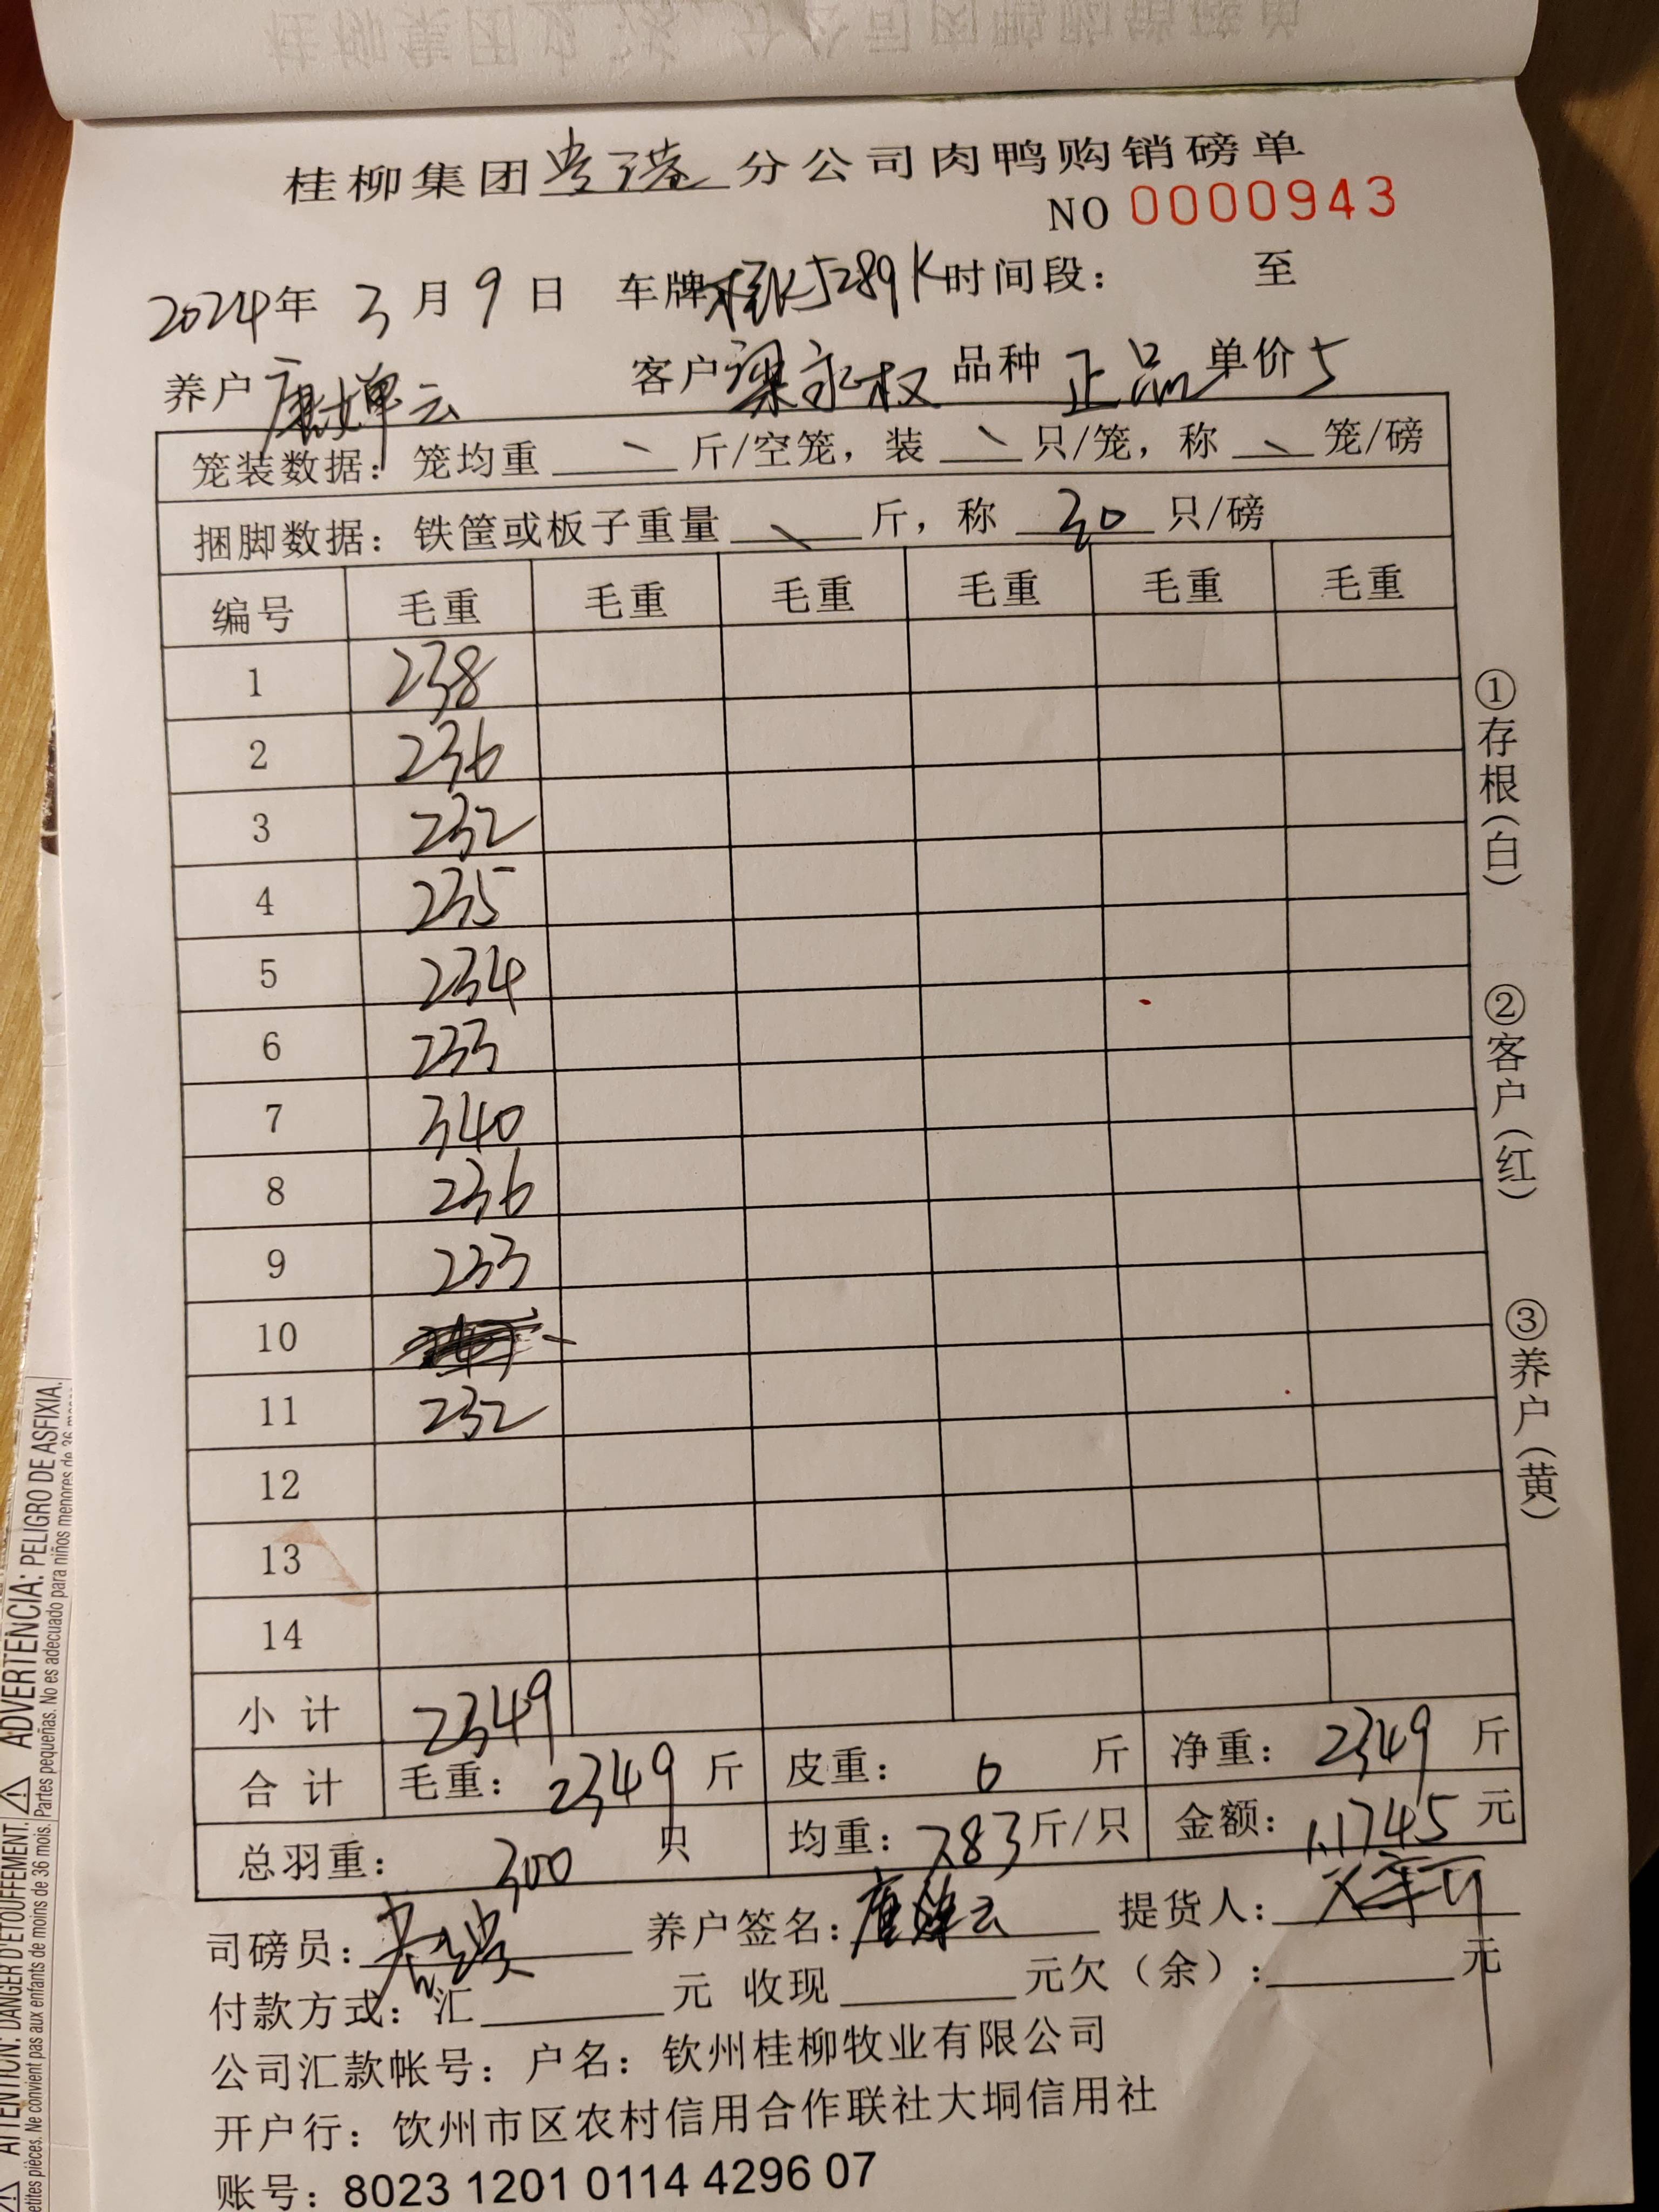 桂柳集团 分公司肉鸭购销磅单
NO 0000943
2024年 3 月 9 日 车牌 5289K 时间段： 至
养户 唐婵云 客户 梁永权 品种 正品 单价 5
笼装数据：笼均重 斤/空笼，装 只/笼，称 笼/磅
捆脚数据：铁筐或板子重量 斤，称 30 只/磅
编号 毛重 毛重 毛重 毛重 毛重 毛重
1 238
2 236
3 232
4 235
5 234
6 233
7 340
8 236
9 233
10
11 232
12
13
14
小 计 2349
合 计 毛重：2349 斤 皮重：0 斤 净重：2349 斤
总羽重：300 只 均重：7.83 斤/只 金额：11745 元
司磅员： 养户签名：唐婵云 提货人：
付款方式：汇 元 收现 元欠（余）： 元
公司汇款帐号：户名：钦州桂柳牧业有限公司
开户行：钦州市区农村信用合作联社大垌信用社
账号：8023 1201 0114 4296 07
①存根（白）
②客户（红）
③养户（黄）
ATTENTION: DANGER D'ÉTOUFFEMENT. ADVERTENCIA: PELIGRO DE ASFIXIA.
etites pièces. Ne convient pas aux enfants de moins de 36 mois. Partes pequeñas. No es adecuado para niños menores de 36